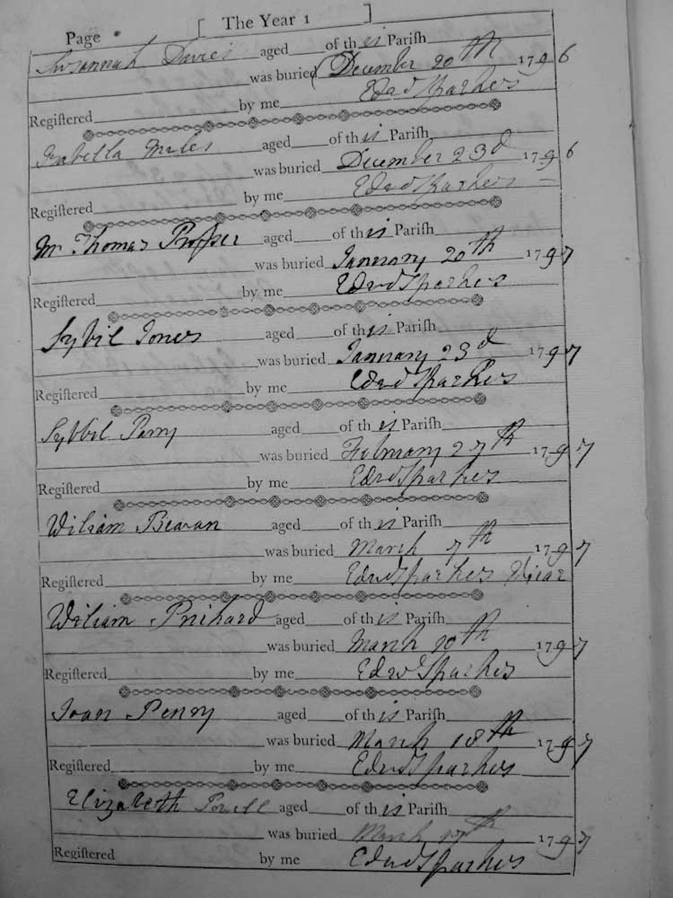 Page [ The Year 1 ]
Susannah Davies aged of this Parish
was buried December 20th 1796
Registered by me Edwd Sparkes
Isabella Miles aged of this Parish
was buried December 23d 1796
Registered by me Edwd Sparkes
Mr Thomas Prosser aged of this Parish
was buried January 20th 1797
Registered by me Edwd Sparkes
Sybil Jones aged of this Parish
was buried January 23d 1797
Registered by me Edwd Sparkes
Sybbel Parry aged of this Parish
was buried Febuary 27th 1797
Registered by me Edwd Sparkes
William Bevan aged of this Parish
was buried March 7th 1797
Registered by me Edwd Sparkes Vicar
William Prichard aged of this Parish
was buried March 10th 1797
Registered by me Edwd Sparkes
Joan Penry aged of this Parish
was buried March 18th 1797
Registered by me Edwd Sparkes
Elizabeth Powell aged of this Parish
was buried March 1797
Registered by me Edwd Sparkes